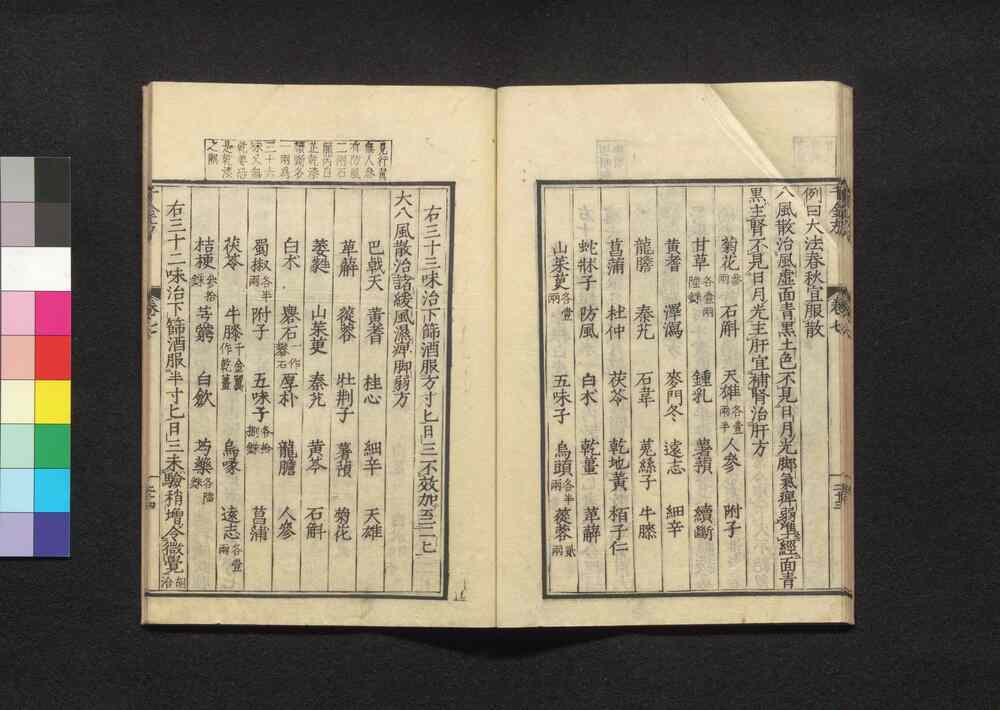 例曰大法春秋宜服散
八風散治風虛面青黑土色不見日月光脚氣痺弱準經面青
黑主腎不見日月光主肝宜補腎治肝方
菊花 叁兩 石斛 天雄 各壹兩半 人參 附子
甘草 各壹兩陸銖 鍾乳 薯蕷 續斷
黃耆 澤瀉 麥門冬 遠志 細辛
龍膽 秦艽 石韋 菟絲子 牛膝
菖蒲 杜仲 茯苓 乾地黃 栢子仁
蛇牀子 防風 白朮 乾薑 萆薢
山茱萸 各壹兩 五味子 烏頭 各半兩 蓯蓉 貳兩
千金方
卷七
右三十三味治下篩酒服方寸匕日三不效加至二匕
大八風散治諸緩風濕痺脚弱方
巴戟天 黃耆 桂心 細辛 天雄
萆薢 蓯蓉 牡荆子 薯蕷 菊花
萎蕤 山茱萸 秦艽 黃芩 石斛
白朮 礜石 一作礬石 厚朴 龍膽 人參
蜀椒 各半兩 附子 五味子 各拾捌銖 菖蒲
茯苓 牛膝 千金翼作乾薑 烏喙 遠志 各壹兩
桔梗 叁拾銖 芎藭 白歛 芍藥 各陸銖
右三十二味治下篩酒服半寸匕日三未驗稍增令微覺 胡洽
千金方
卷七